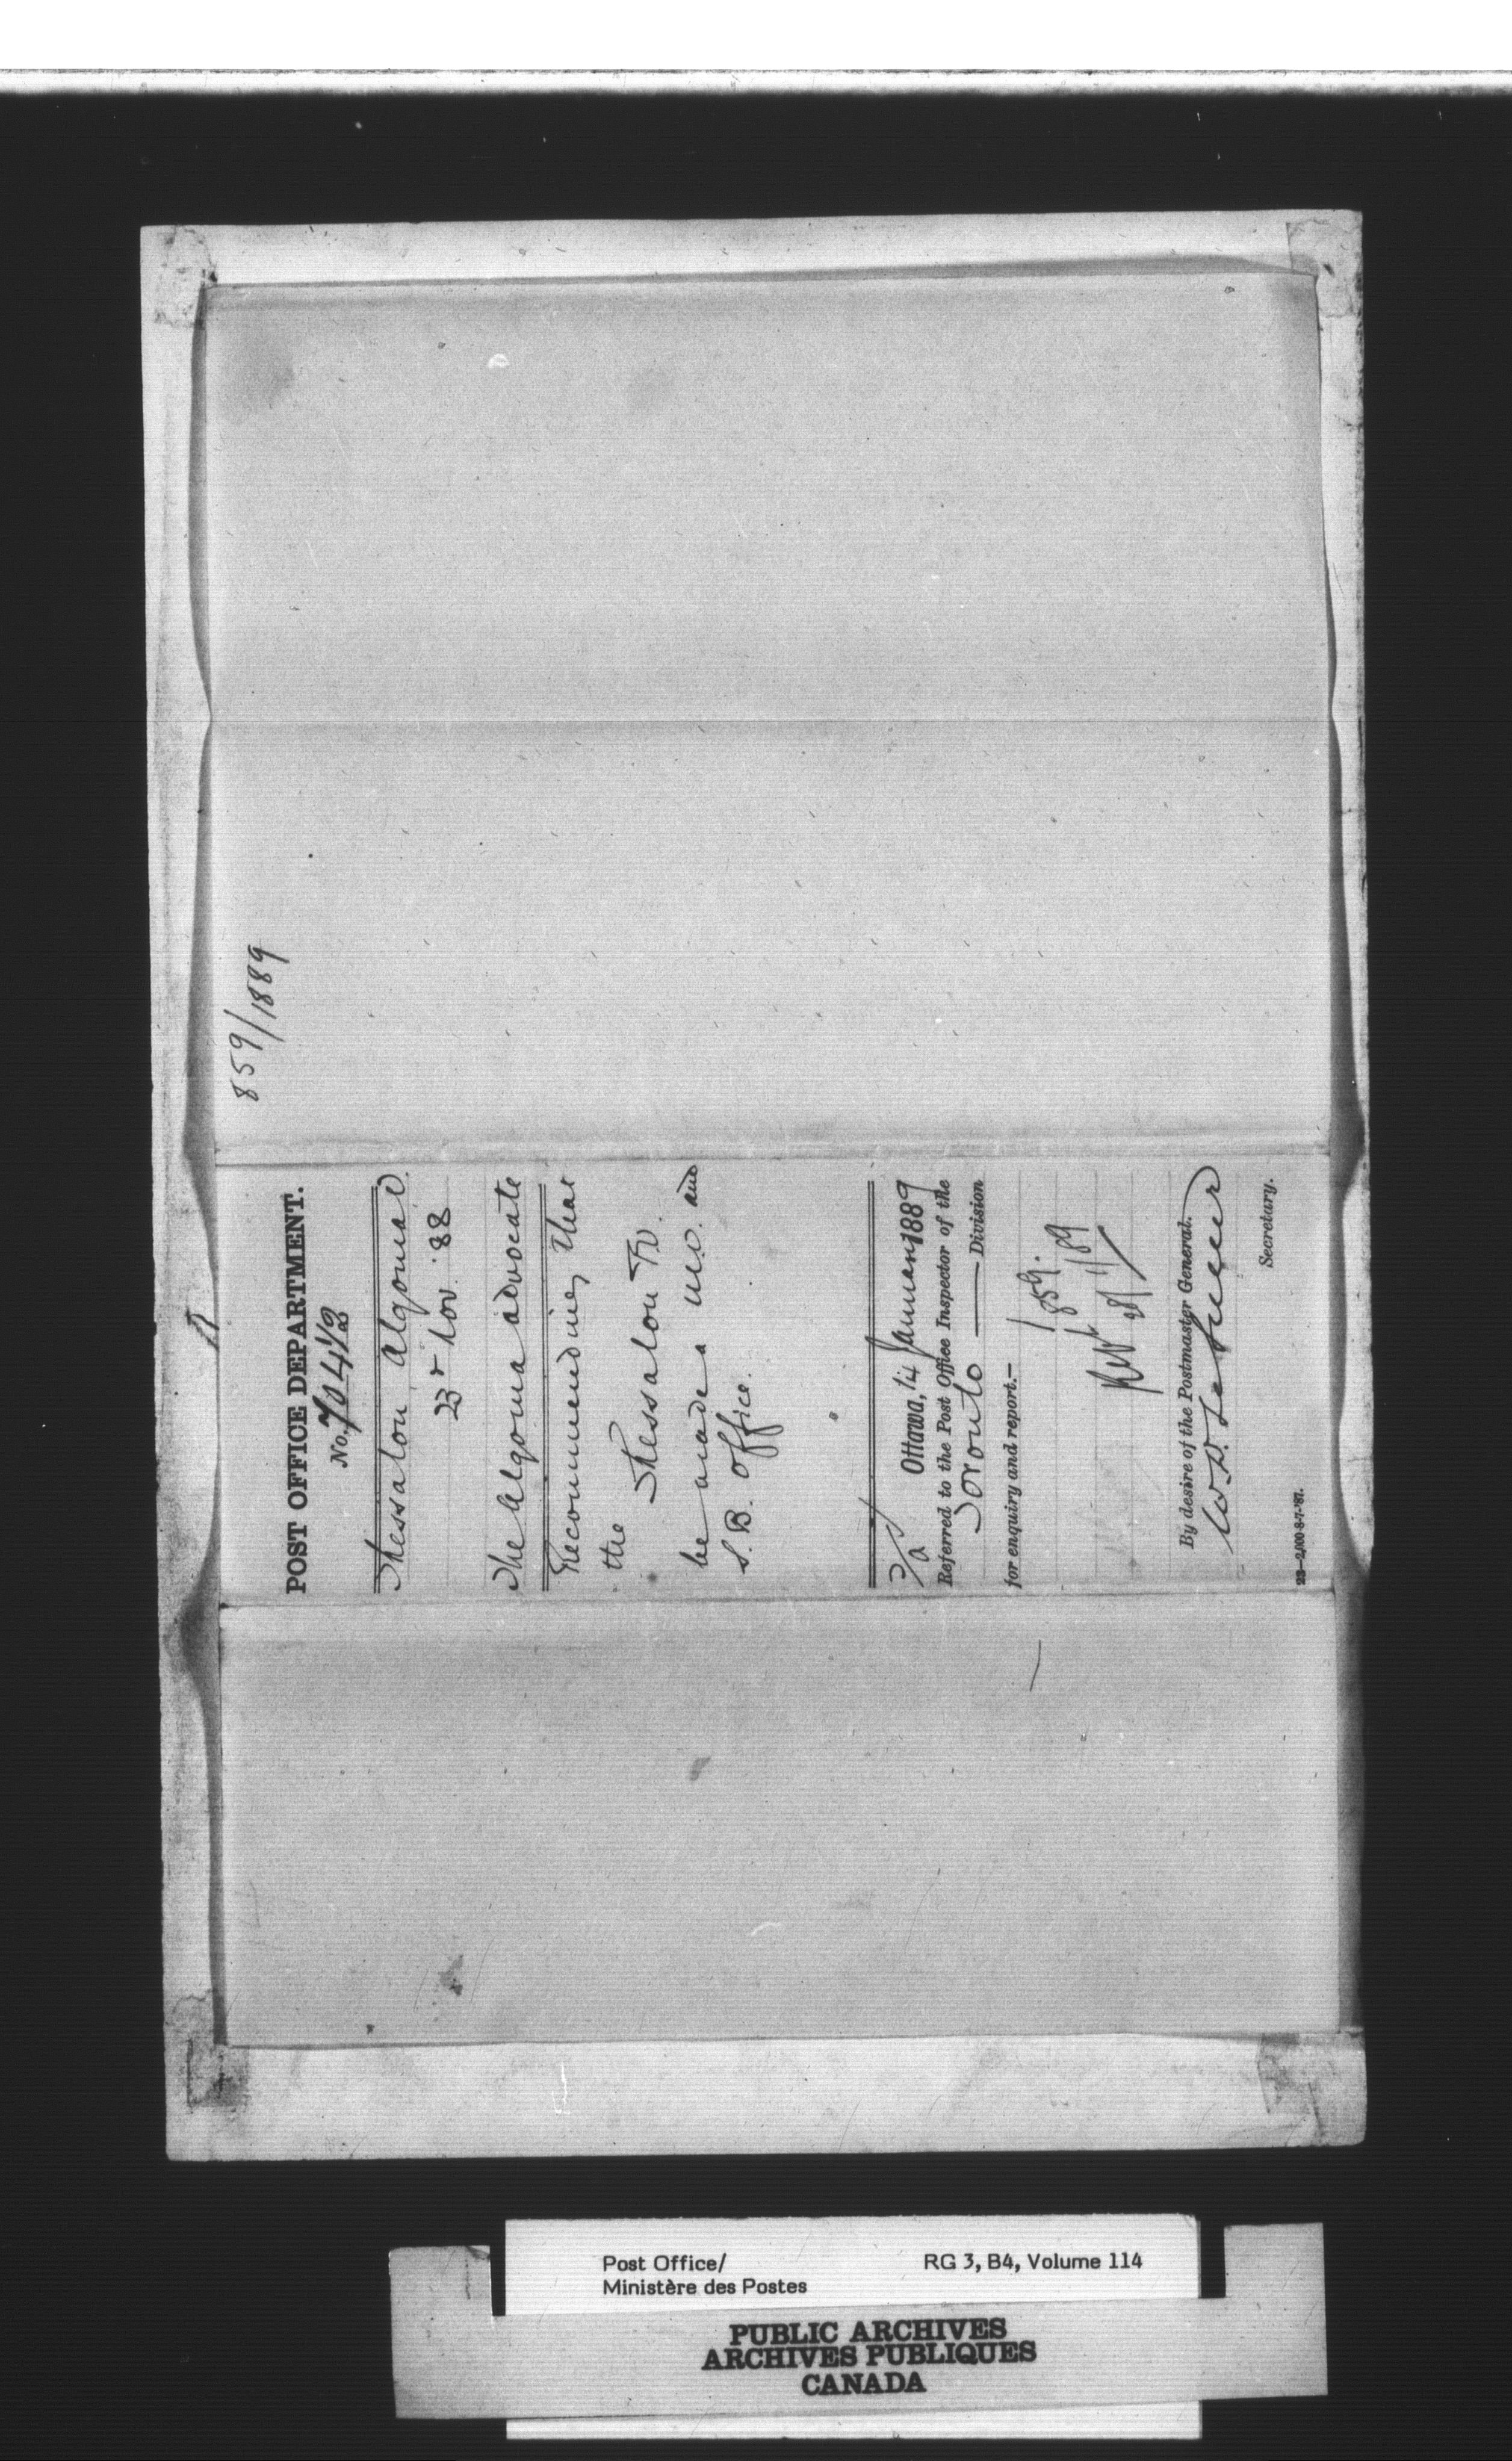 859/1889
POST OFFICE DEPARTMENT.
No.
Thessalon Algoma O.
23rd Nov. '88
The Algoma advocate
Recommending that
the Thessalon P.O.
be made a M.O. and
S.B. office.
Ottawa, 14 January 1889
Referred to the Post Office Inspector of the
Toronto Division
for enquiry and report.—
859.
28/1/89
By desire of the Postmaster General.
Secretary.
23—2,000-8-7-'87.
Post Office/
Ministère des Postes
RG 3, B4, Volume 114
PUBLIC ARCHIVES
ARCHIVES PUBLIQUES
CANADA